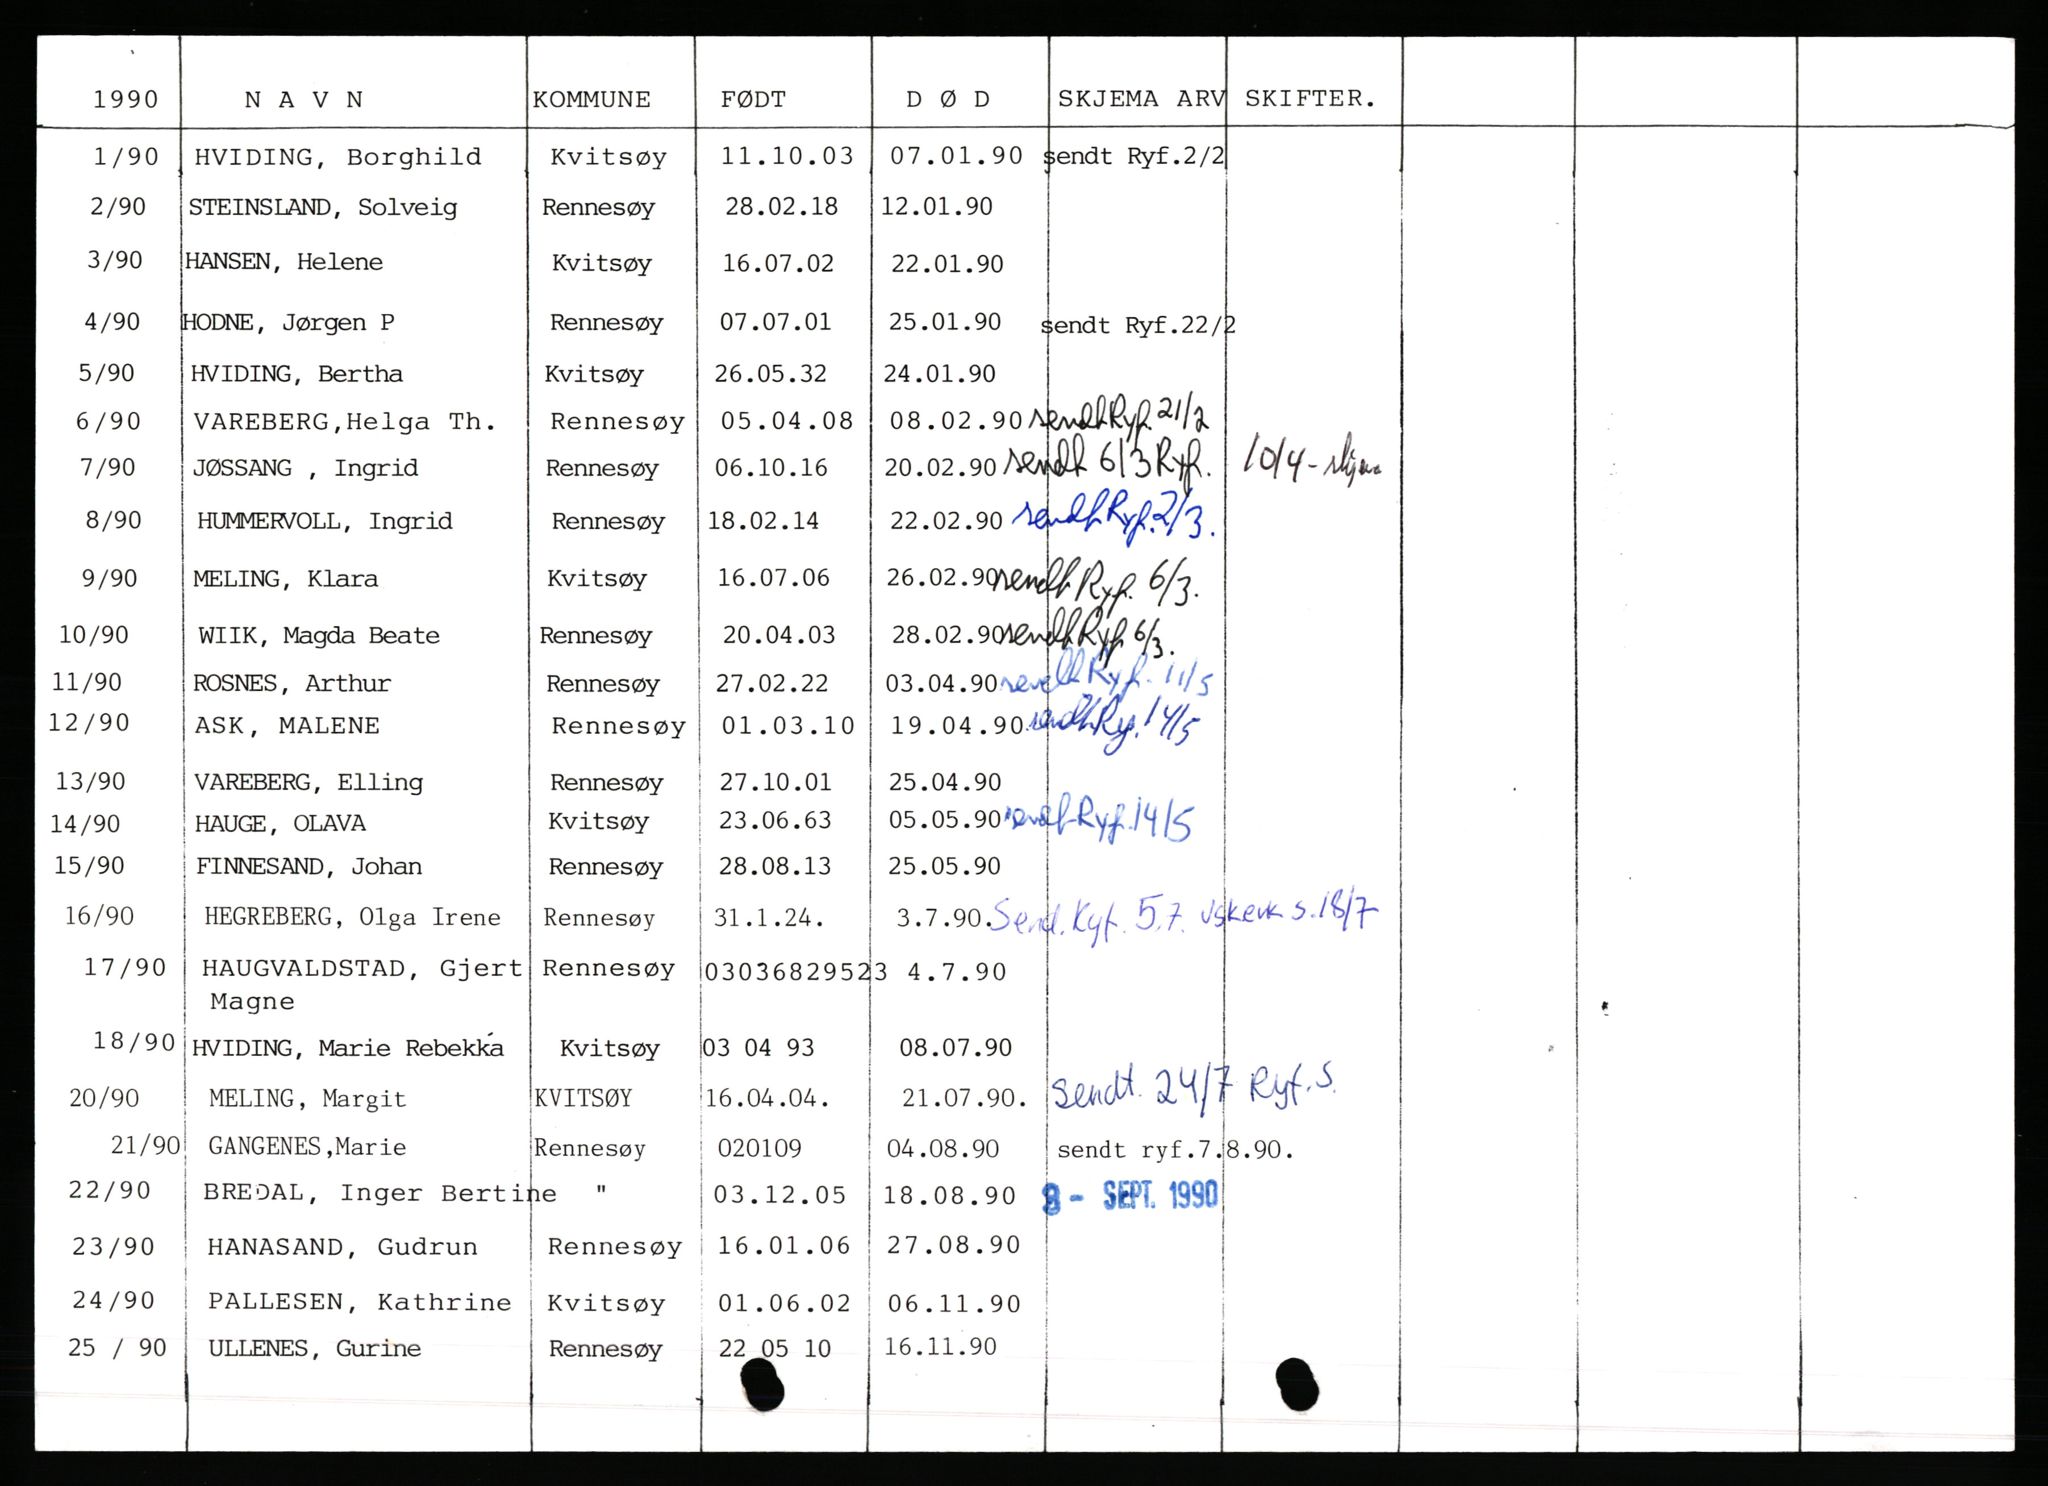 1990 N A V N KOMMUNE FØDT D Ø D SKJEMA ARV SKIFTER.
1/90 HVIDING, Borghild Kvitsøy 11.10.03 07.01.90 sendt Ryf.2/2
2/90 STEINSLAND, Solveig Rennesøy 28.02.18 12.01.90
3/90 HANSEN, Helene Kvitsøy 16.07.02 22.01.90
4/90 HODNE, Jørgen P Rennesøy 07.07.01 25.01.90 sendt Ryf.22/2
5/90 HVIDING, Bertha Kvitsøy 26.05.32 24.01.90
6/90 VAREBERG,Helga Th. Rennesøy 05.04.08 08.02.90 sendt Ryf. 21/2
7/90 JØSSANG , Ingrid Rennesøy 06.10.16 20.02.90 sendt 6/3 Ryf. 10/4 -
8/90 HUMMERVOLL, Ingrid Rennesøy 18.02.14 22.02.90 sendt Ryf. 2/3.
9/90 MELING, Klara Kvitsøy 16.07.06 26.02.90 sendt Ryf. 6/3.
10/90 WIIK, Magda Beate Rennesøy 20.04.03 28.02.90 sendt Ryf 6/3.
11/90 ROSNES, Arthur Rennesøy 27.02.22 03.04.90 sendt Ryf. 11/5
12/90 ASK, MALENE Rennesøy 01.03.10 19.04.90 sendt Ry. 14/5
13/90 VAREBERG, Elling Rennesøy 27.10.01 25.04.90
14/90 HAUGE, OLAVA Kvitsøy 23.06.63 05.05.90 sendt Ryf. 14/5
15/90 FINNESAND, Johan Rennesøy 28.08.13 25.05.90
16/90 HEGREBERG, Olga Irene Rennesøy 31.1.24. 3.7.90. Send. Ryf. 5.7. s. 18/7
17/90 HAUGVALDSTAD, Gjert Rennesøy 03036829523 4.7.90
Magne
18/90 HVIDING, Marie Rebekka Kvitsøy 03 04 93 08.07.90
20/90 MELING, Margit KVITSØY 16.04.04. 21.07.90. sendt. 24/7 Ryf. s.
21/90 GANGENES,Marie Rennesøy 020109 04.08.90 sendt ryf.7.8.90.
22/90 BREDAL, Inger Bertine " 03.12.05 18.08.90 - SEPT. 1990
23/90 HANASAND, Gudrun Rennesøy 16.01.06 27.08.90
24/90 PALLESEN, Kathrine Kvitsøy 01.06.02 06.11.90
25 / 90 ULLENES, Gurine Rennesøy 22 05 10 16.11.90